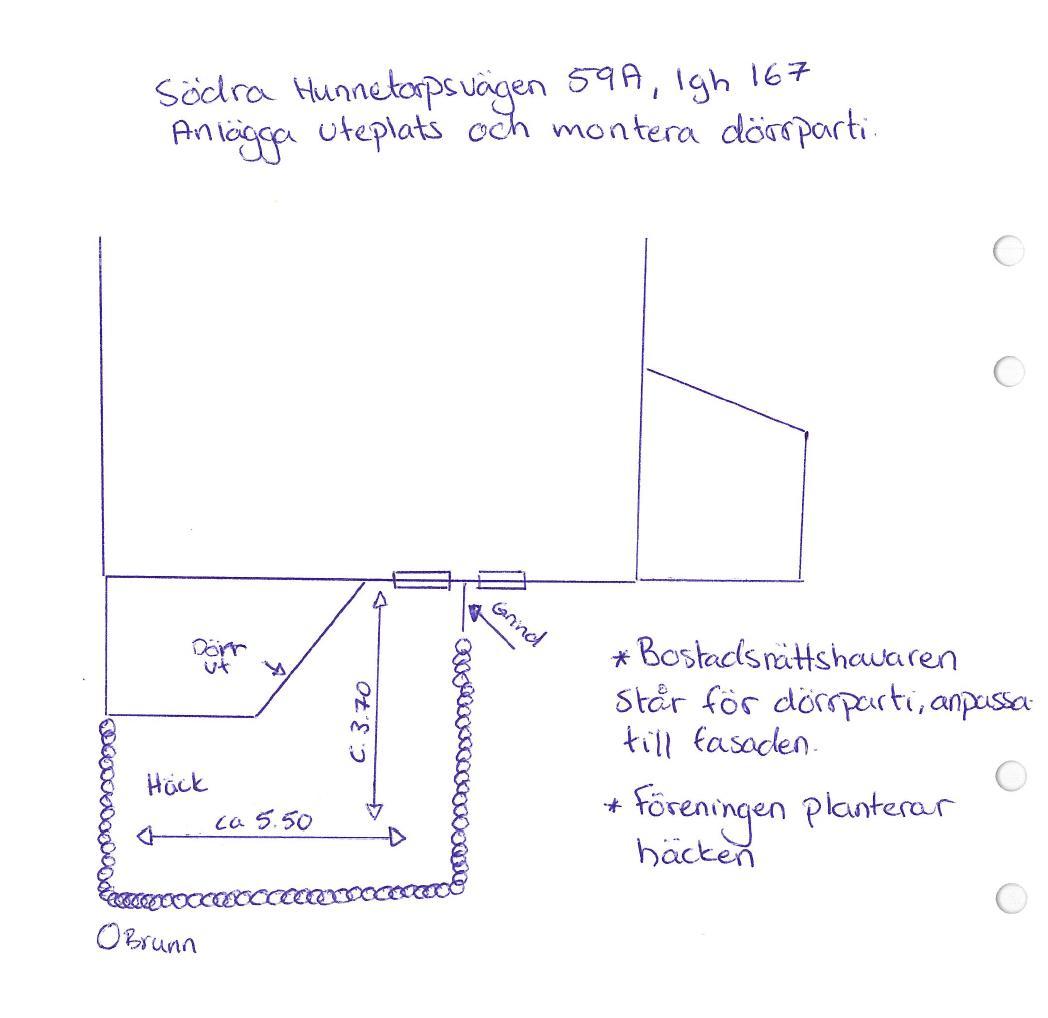 Södra Hunnetorpsvägen 59A, lgh 167
Anlägga uteplats och montera dörrparti.
Dörr
ut
Grind
C. 3.70
Häck
ca 5.50
Brunn
* Bostadsrättshavaren
står för dörrparti, anpassa
till fasaden.
* Föreningen planterar
häcken